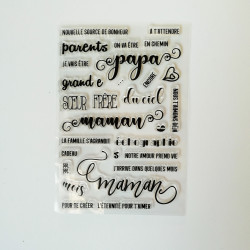 NOUVELLE SOURCE DE BONHEUR
A T'ATTENDRE
parents
ON VA ÊTRE
EN CHEMIN
JE VAIS ÊTRE
papa
grand e
ENCORE
SŒUR FRÈRE
du ciel
NOUS T'AIMONS DÉJÀ
maman
LA FAMILLE S'AGRANDIT
échographie
CADEAU
NOTRE AMOUR PREND VIE
J'ARRIVE DANS QUELQUES MOIS
mois
maman
POUR TE CRÉER
L'ÉTERNITÉ POUR T'AIMER